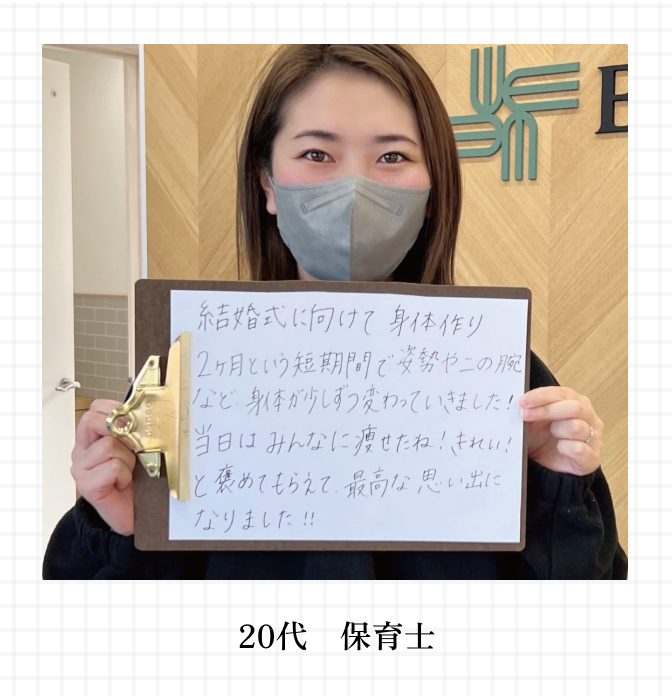 結婚式に向けて 身体作り
2ヶ月という短期間で姿勢や二の腕
など、身体が少しずつ変わっていきました!
当日は みんなに痩せたね!きれい!
と褒めてもらえて、最高な思い出に
なりました!!
20代 保育士